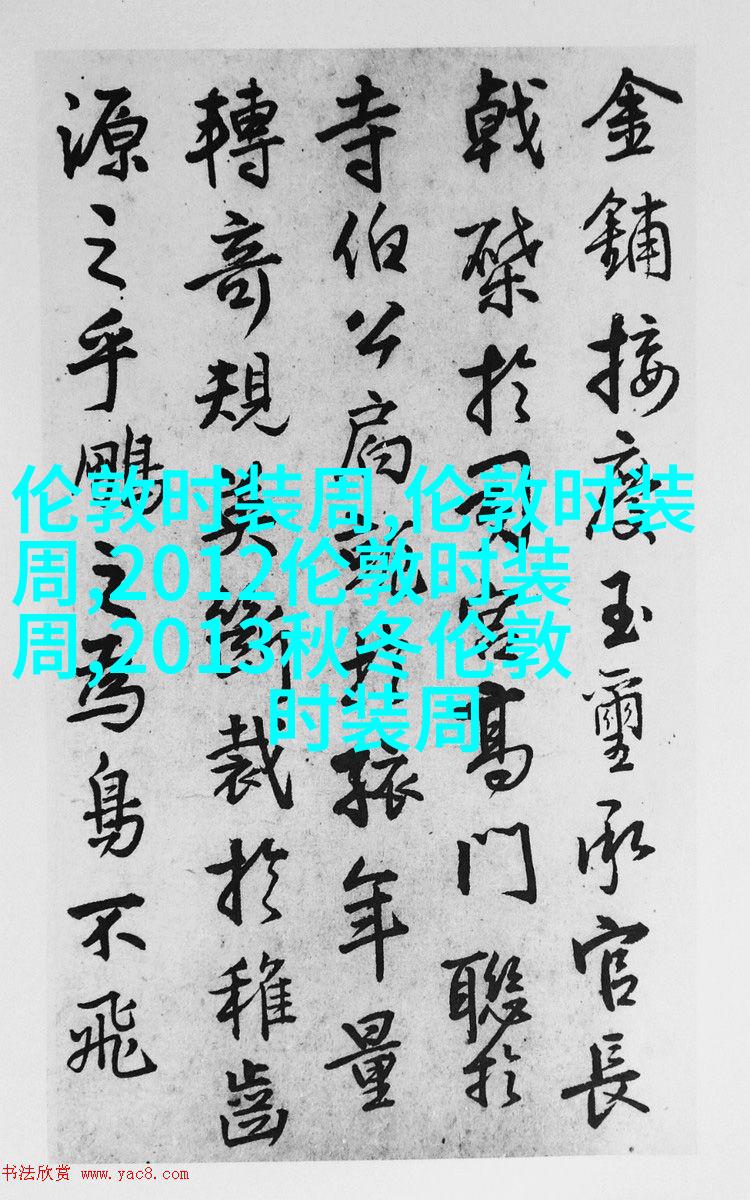 金鋪接慶玉璽承官長
戟槊於司宮高門聯於
寺伯公扃孤年量
轉奇規奠衡裁於稚齒
源之乎鵬之為鳥不飛
伦敦时装周,伦敦时装
周,2012伦敦时装
周,2013秋冬伦敦
时装周
书法欣赏 www.yac8.com